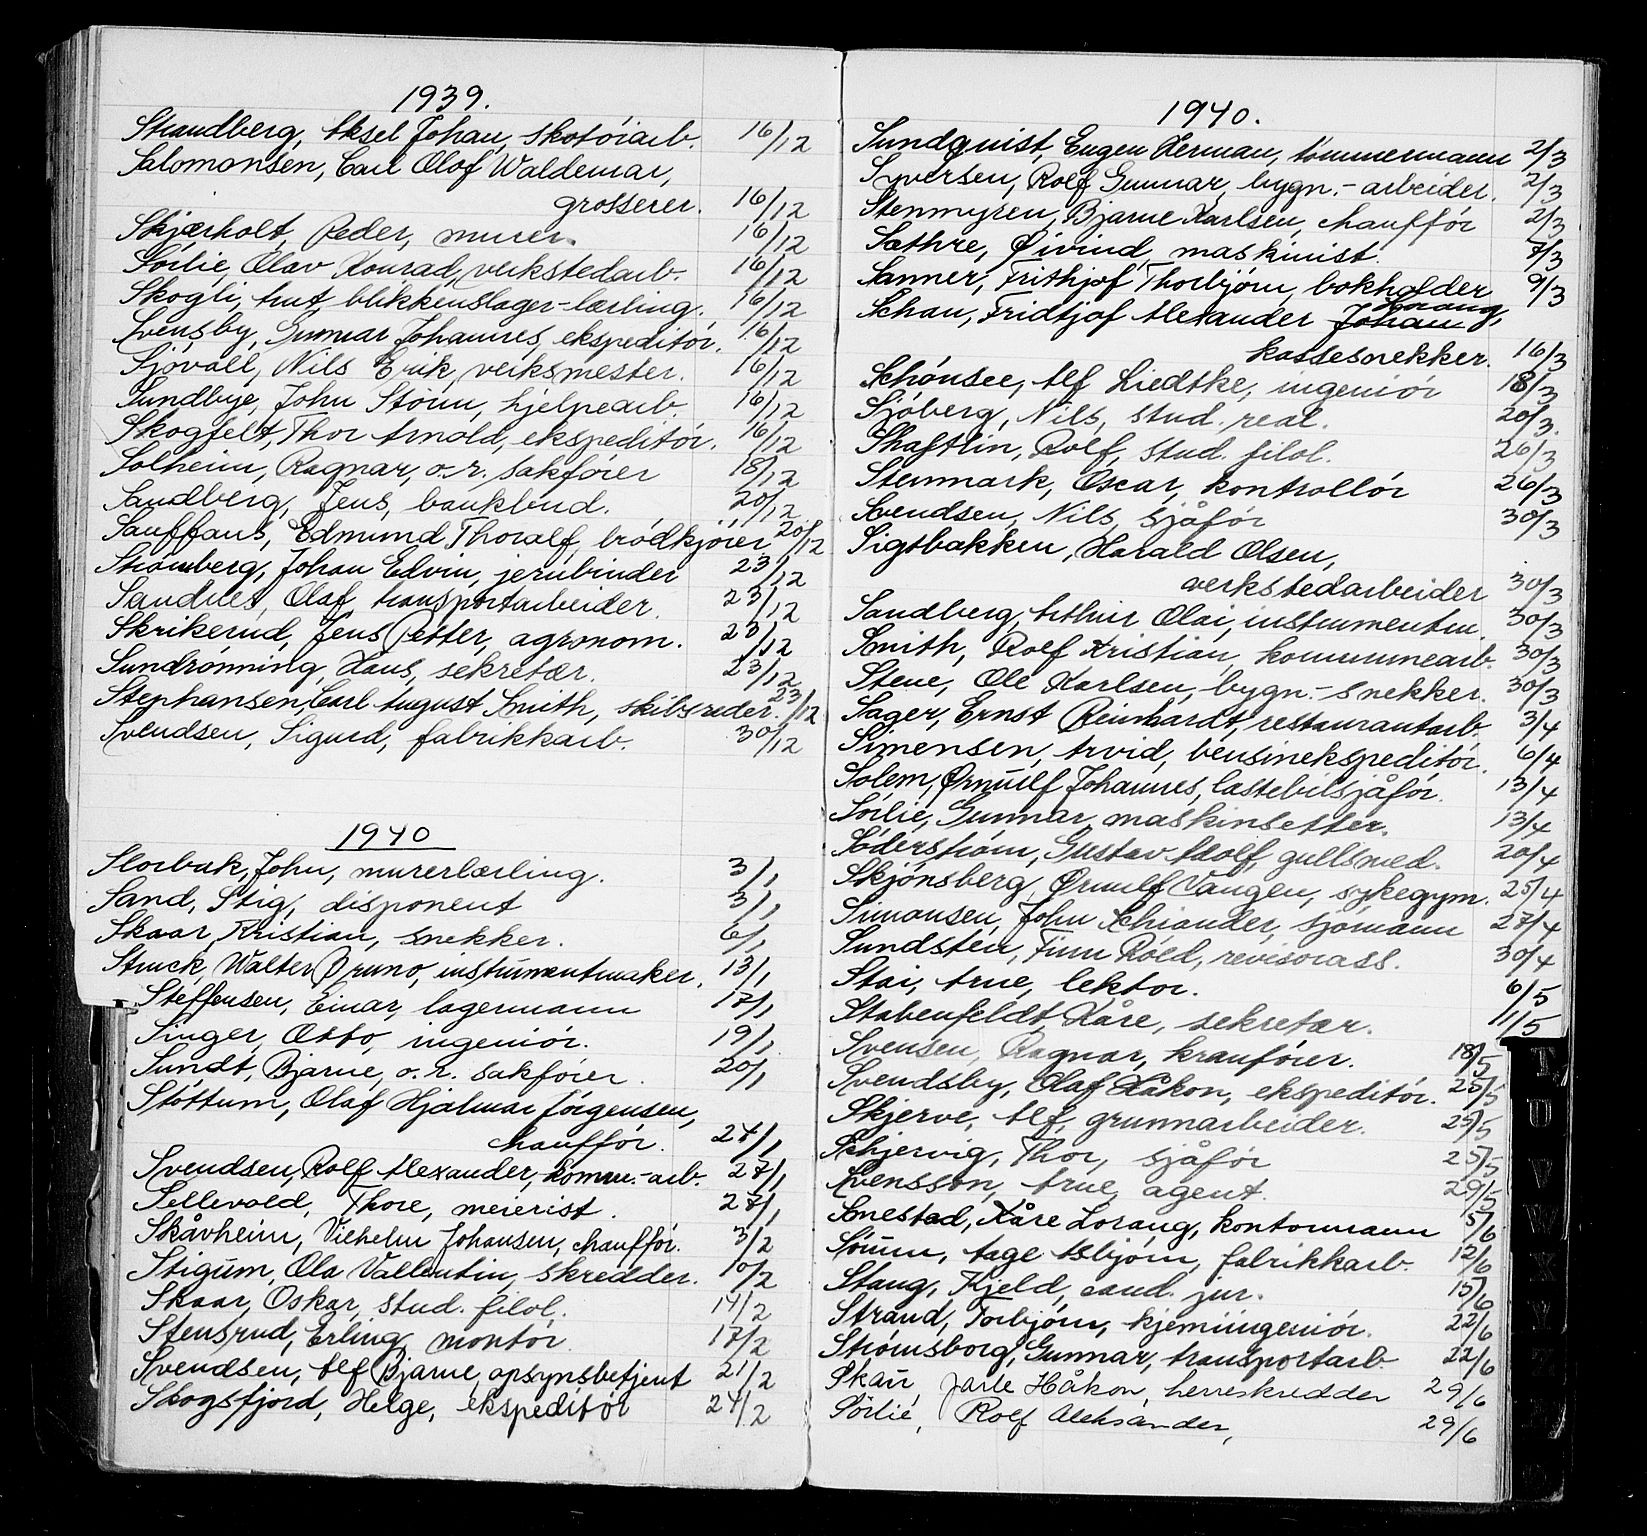 1939.
Strandberg, Aksel Johan, skotøiarb. 16/12
Salomonsen, Carl Olof Waldemar,
grosserer. 16/12
Skjærholt, Peder, murer. 16/12
Sørlie, Olav Konrad, verkstedarb. 16/12
Skogli, Knut blikkenslager-lærling. 16/12
Svensby, Gunnar Johannes, ekspeditør. 16/12
Sjövall, Nils Erik, verksmester. 16/12
Sundbye, John Storm, hjelpearb. 16/12
Skogfelt, Thor Arnold, ekspeditør. 16/12
Solheim, Ragnar, o.r. sakfører 18/12
Sandberg, Jens, bankbud. 20/12
Sauffaus, Edmund Thoralf, brødkjører. 20/12
Strømberg, Johan Edvin, jernbinder 23/12
Sandnes, Olaf, transportarbeider. 23/12
Skrikerud, Jens Petter, agronom. 23/12
Sundrønning, Hans, sekretær. 23/12
Stephansen, Carl August Smith, skibsreder. 23/12
Svendsen, Sigurd, fabrikkarb. 30/12
1940
Slorbak, John, murerlærling. 3/1
Sand, Stig, disponent 3/1
Skaar, Kristian, snekker. 6/1
Struck, Walter Bruno, instrumentmaker. 13/1
Steffensen, Einar, lagermann 17/1
Singer, Otto, ingeniør. 19/1
Sundt, Bjarne, o.r. sakfører. 20/1
Støttum, Olaf Hjalmar Jørgensen,
chauffør. 24/1
Svendsen, Rolf Alexander, komm.-arb. 27/1
Sellevold, Thore, meierist. 27/1
Skåvheim, Vilhelm Johansen, chauffør. 3/2
Stigum, Ola Vallentin, skredder. 10/2
Skaar, Oskar, stud. filol. 14/2
Stensrud, Erling, montør 17/2
Svendsen, Alf Bjarne, opsynsbetjent 21/2
Skogsfjord, Helge, ekspeditør 24/2
1940.
Sundquist, Eugen Herman, tømmermann 2/3
Syversen, Rolf Gunnar, bygn.-arbeider. 2/3
Stenmyren, Bjarne Karlsen, chauffør 2/3
Sæthre, Øivind, maskinist. 7/3
Sanner, Frithjof Thorbjørn, bokholder 9/3
Lorang,
Schau, Fridtjof Alexander Johan,
kassesnekker. 16/3
Schönsee, Alf Liedtke, ingeniør 18/3
Sjøberg, Nils, stud. real. 20/3.
Shaftlin, Rolf, stud. filol. 26/3
Stenmark, Oscar, kontrollør 26/3
Svendsen, Nils, sjåfør 30/3
Sigtbakken, Harald Olsen,
verkstedarbeider 30/3
Sandberg, Arthur Olai, instrumentm. 30/3
Smith, Rolf Kristian, kommunearb. 30/3
Stene, Ole Karlsen, bygn.-snekker. 30/3
Sager, Ernst Reinhardt, restaurantarb. 3/4
Simensen, Arvid, bensinekspeditør. 6/4
Solem, Ørnulf Johannes, lastebilsjåfør. 13/4
Sørlie, Gunnar, maskinsetter. 13/4
Söderstrøm, Gustav Adolf, gullsmed. 20/4
Skjønsberg, Ørnulf Vangen, sykegym. 25/4
Simonsen, John Schiander, sjømann 27/4
Sundsten, Finn Rold, revisorass. 30/4
Stai, Arne, lektor. 6/5
Stabenfeldt, Kåre, sekretær. 11/5
Svensen, Ragnar, kranfører. 18/5
Svendsby, Olaf Håkon, ekspeditør. 25/5
Skjerve, Alf, grunnarbeider. 25/5
Schjervig, Thor, sjåfør 25/5
Svensson, Arne, agent. 29/5
Smestad, Kåre Lorang, kontormann 5/6
Sørum, Aage Asbjørn, fabrikkarb. 12/6
Stang, Kjeld, cand. jur. 15/6
Strand, Torbjørn, kjemiingeniør. 22/6
Strømsborg, Gunnar, transportarb. 22/6
Skau, Jarle Håkon, herreskredder 29/6
Sørlie, Rolf Aleksander, 29/6
T
U
V
W
X
Y
Z